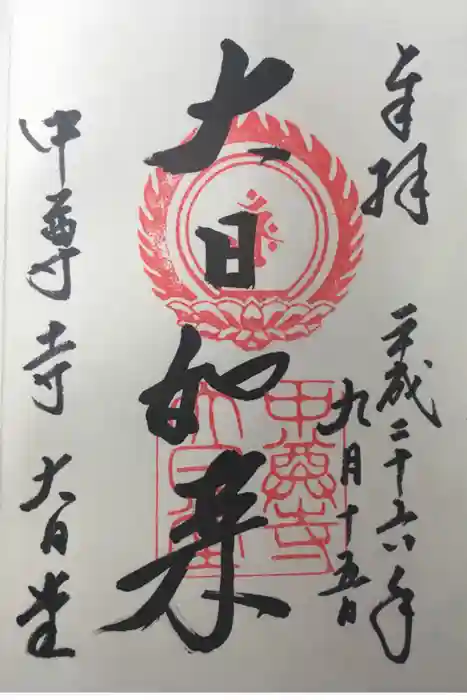 奉拝
平成二十六年
九月十五日
大日如来
中尊寺
大日堂
中尊寺 大日堂